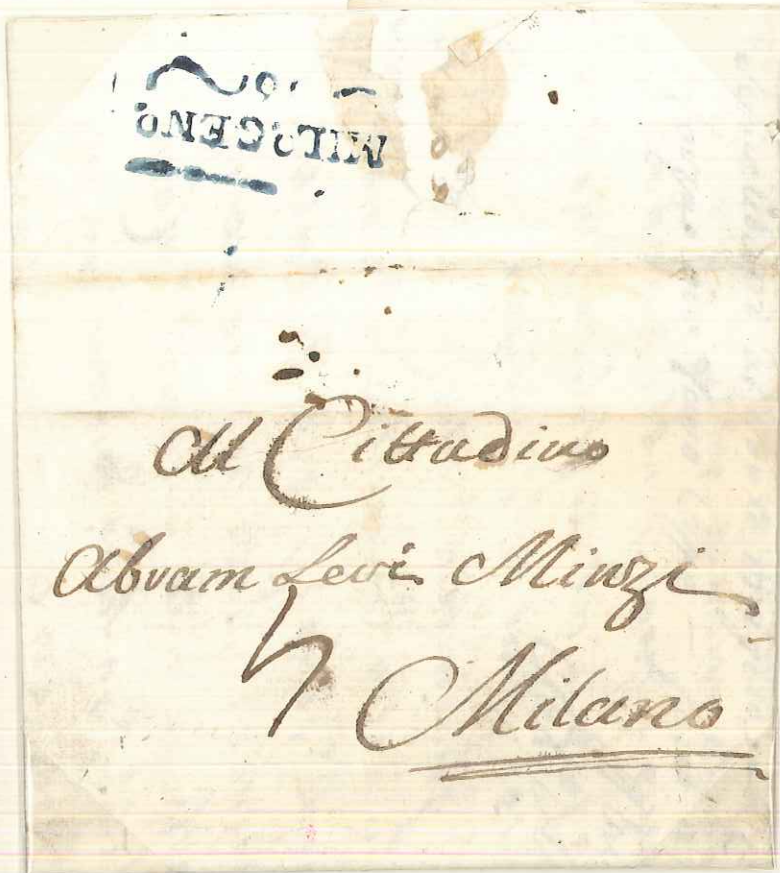 MIL? GEN?
Al Cittadino
Abram Levi Minzi
4
Milano